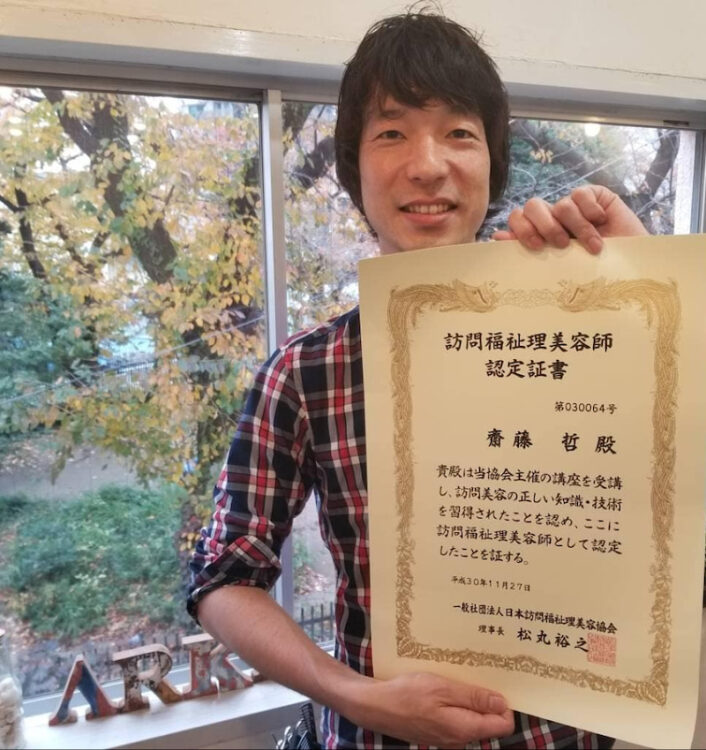 訪問福祉理美容師
認定証書
第030064号
齋藤 哲 殿
貴殿は当協会主催の講座を受講
し、訪問美容の正しい知識・技術
を習得されたことを認め、ここに
訪問福祉理美容師として認定
したことを証する。
平成30年11月27日
一般社団法人日本訪問福祉理美容協会
理事長 松丸裕之
ARK